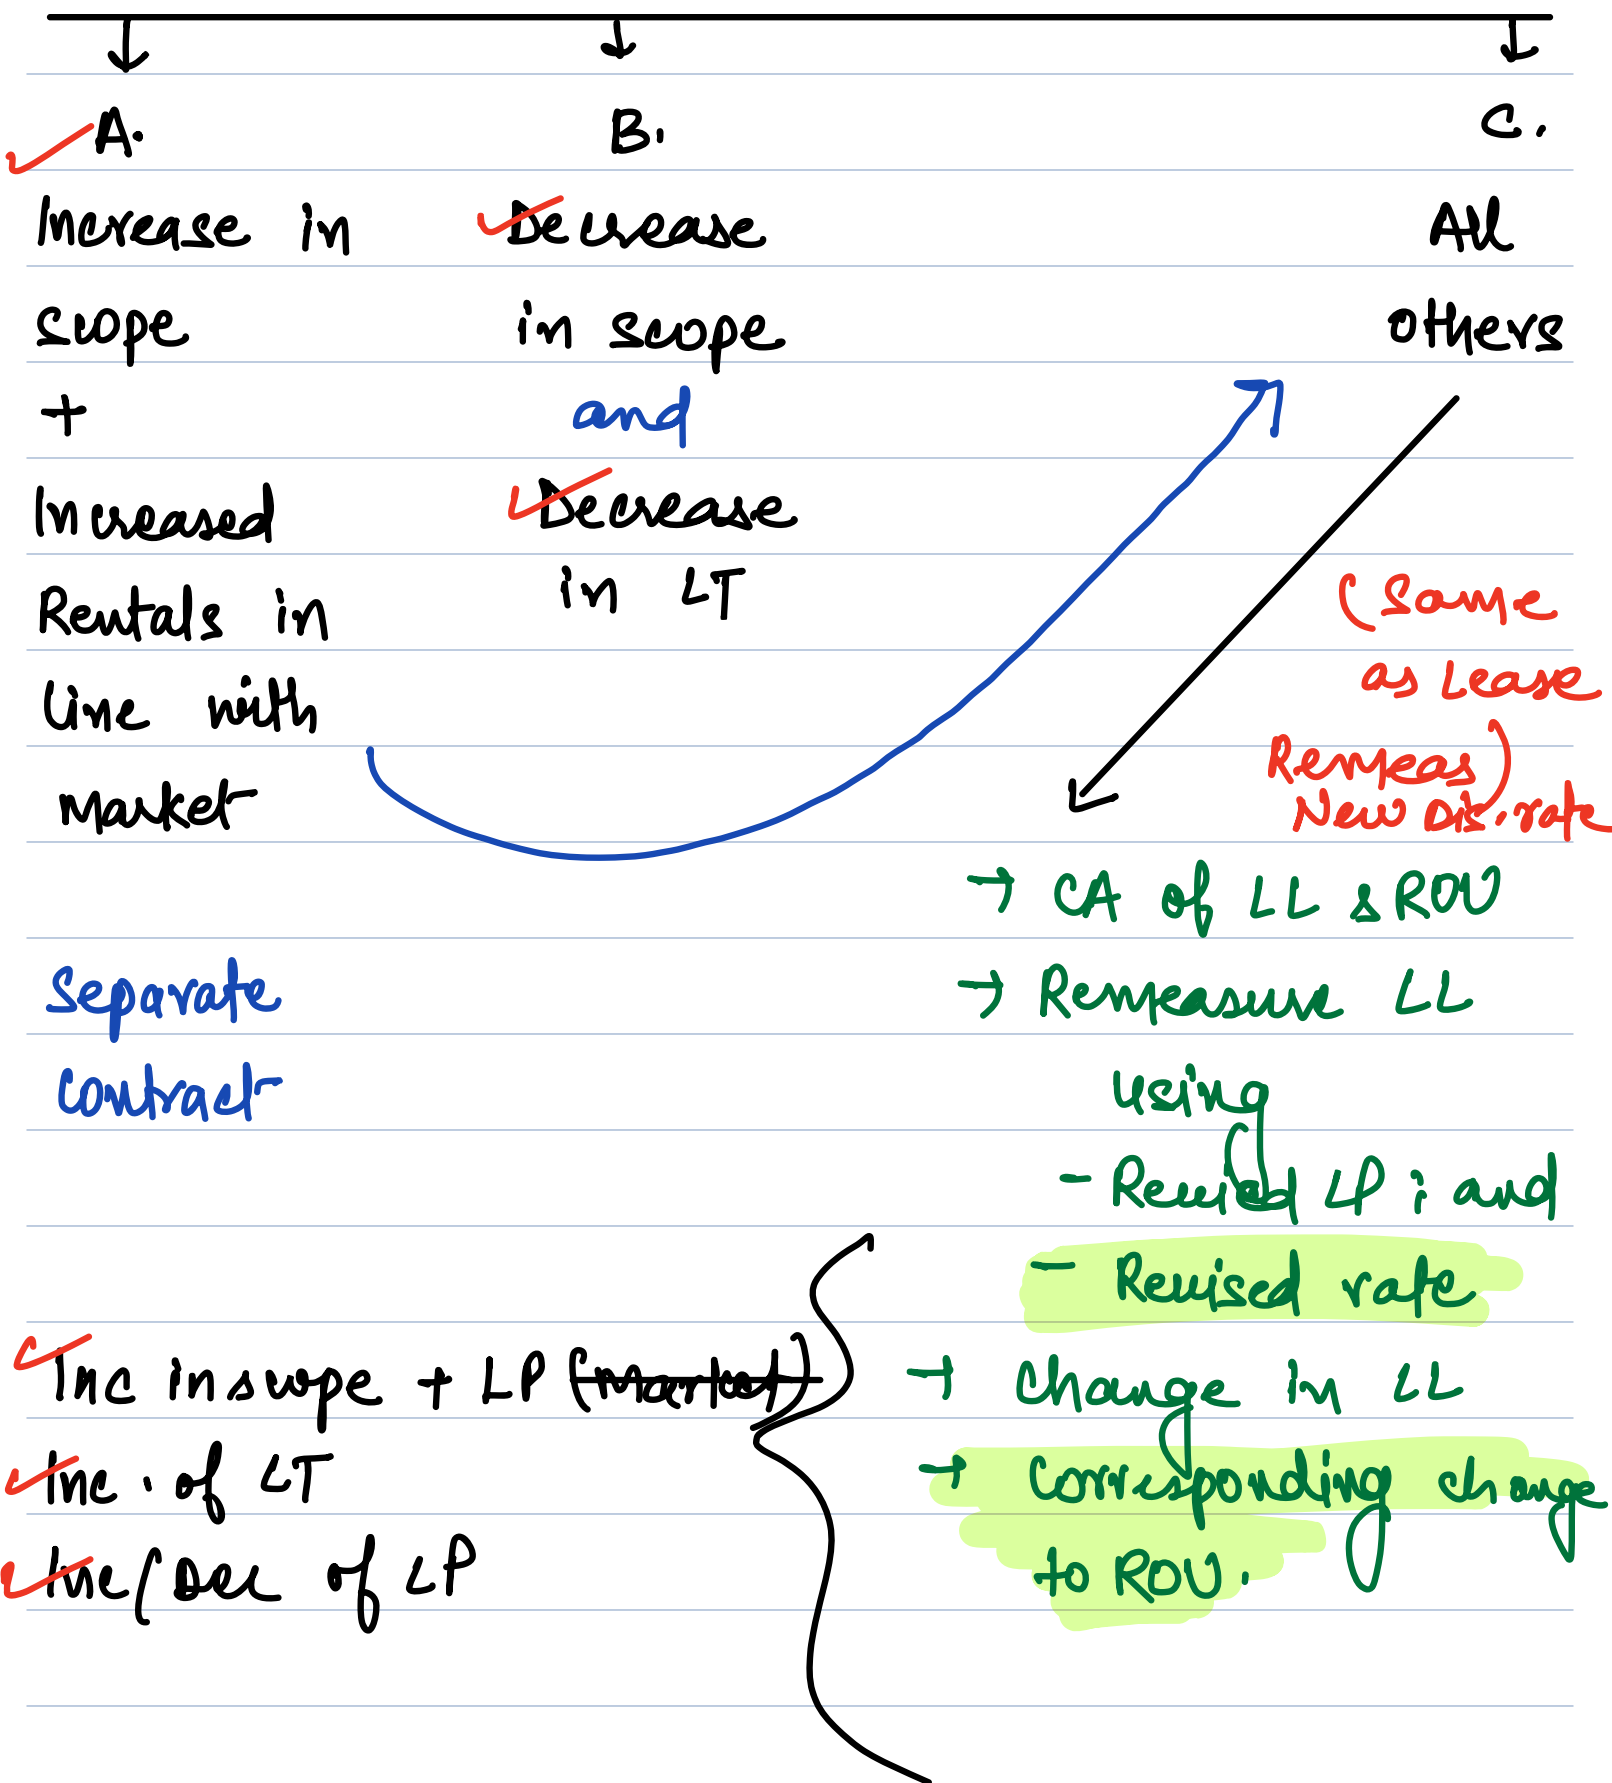 A.
Increase in
scope
+
Increased
Rentals in
line with
market
Separate
Contract
B.
Decrease
in scope
and
Decrease
in LT
C.
All
others
(Same
as Lease
Remeas)
New Dis. rate
→ CA of LL & ROU
→ Remeasure LL
using
- Revised LP ; and
- Revised rate
→ Change in LL
→ Corresponding change
to ROU.
Inc in scope + LP (Market)
Inc. of LT
Inc/Dec of LP